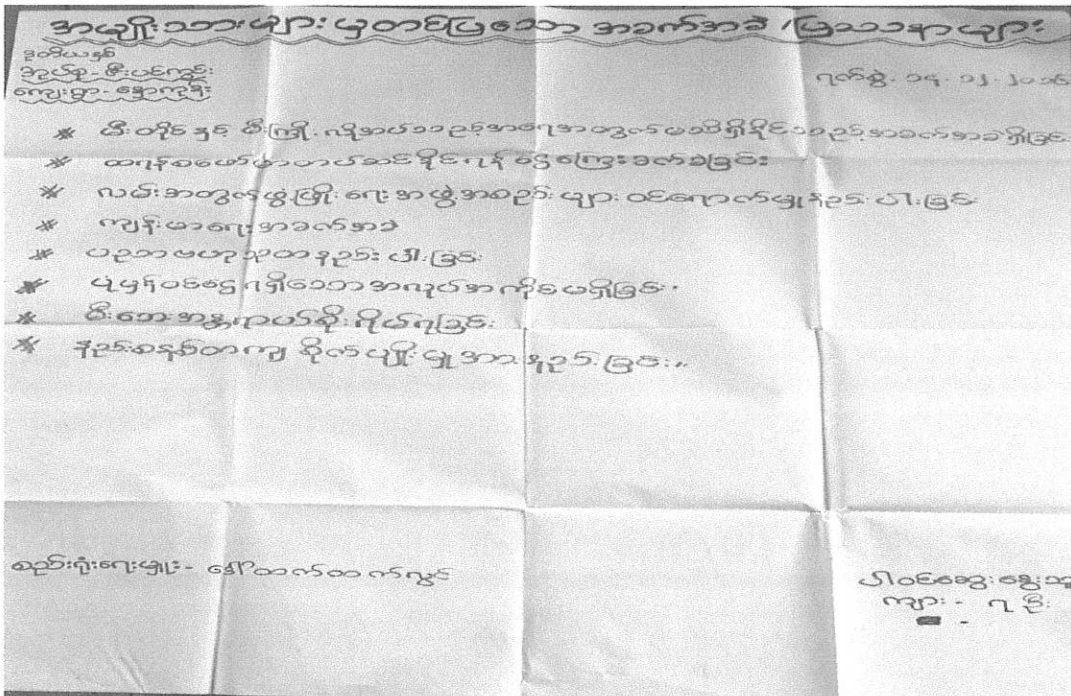 အမျိုးသားများမှတင်ပြသောအခက်အခဲ/ပြဿနာများ
ဒုတိယနှစ်
အုပ်စု - ဇီးပင်ကွင်း
ကျေးရွာ - နှောကုန်း
ရက်စွဲ - ၁၄.၁၂.၂၀၁၆
* မီးတိုင်နှင့် မီးကြိုး လိုအပ်သည့်အရေအတွက်မသိရှိနိုင်သည့်အခက်အခဲရှိခြင်း
* ထရန်စဖော်မာတပ်ဆင်နိုင်ရန်ငွေကြေးခက်ခဲခြင်း
* လမ်းအတွက်ဖွံ့ဖြိုးရေးအဖွဲ့အစည်းများ ဝင်ရောက်မှုနည်းပါးခြင်း
* ကျန်းမာရေးအခက်အခဲ
* ပညာဗဟုသုတနည်းပါးခြင်း
* ပုံမှန်ဝင်ငွေရရှိသောအလုပ်အကိုင်မရှိခြင်း
* မီးဘေးအန္တရာယ်စိုးရိမ်ရခြင်း
* နည်းစနစ်တကျ စိုက်ပျိုးမှုအားနည်းခြင်း။
စည်းရုံးရေးမှူး - နော်တက်တက်လွင်
ပါဝင်ဆွေးနွေးသူ
ကျား - ၇ ဦး